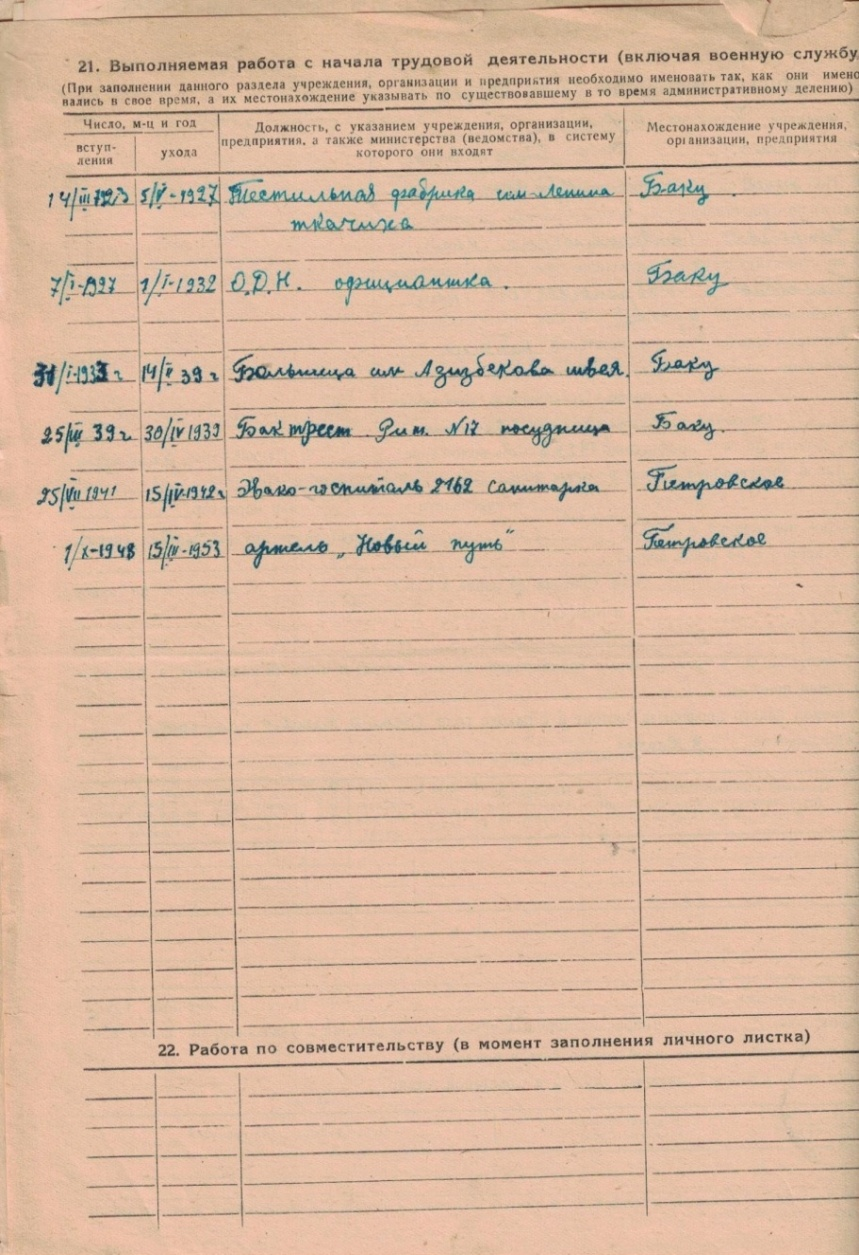 21. Выполняемая работа с начала трудовой деятельности (включая военную службу
(При заполнении данного раздела учреждения, организации и предприятия необходимо именовать так, как они имено
вались в свое время, а их местонахождение указывать по существовавшему в то время административному делению)
Число, м-ц и год
вступ-
ления
ухода
Должность, с указанием учреждения, организации,
предприятия, а также министерства (ведомства), в систему
которого они входят
Местонахождение учреждения,
организации, предприятия
14/III 1923 5/V-1927 Тестильная фабрика им Ленина Баку.
ткачиха
7/I-1927 1/I-1932 О.Д.Н. официантка. Баку
31/I-1933 г 14/II 39 г Больница им Азизбекова швея. Баку
25/III 39 г 30/IV 1939 Бак трест № 17 посудница Баку.
25/VII 1941 15/IV-1942 г Эвако-госпиталь 2162 санитарка Петровское
1/X-1948 15/III-1953 артель „Новый путь" Петровское
22. Работа по совместительству (в момент заполнения личного листка)